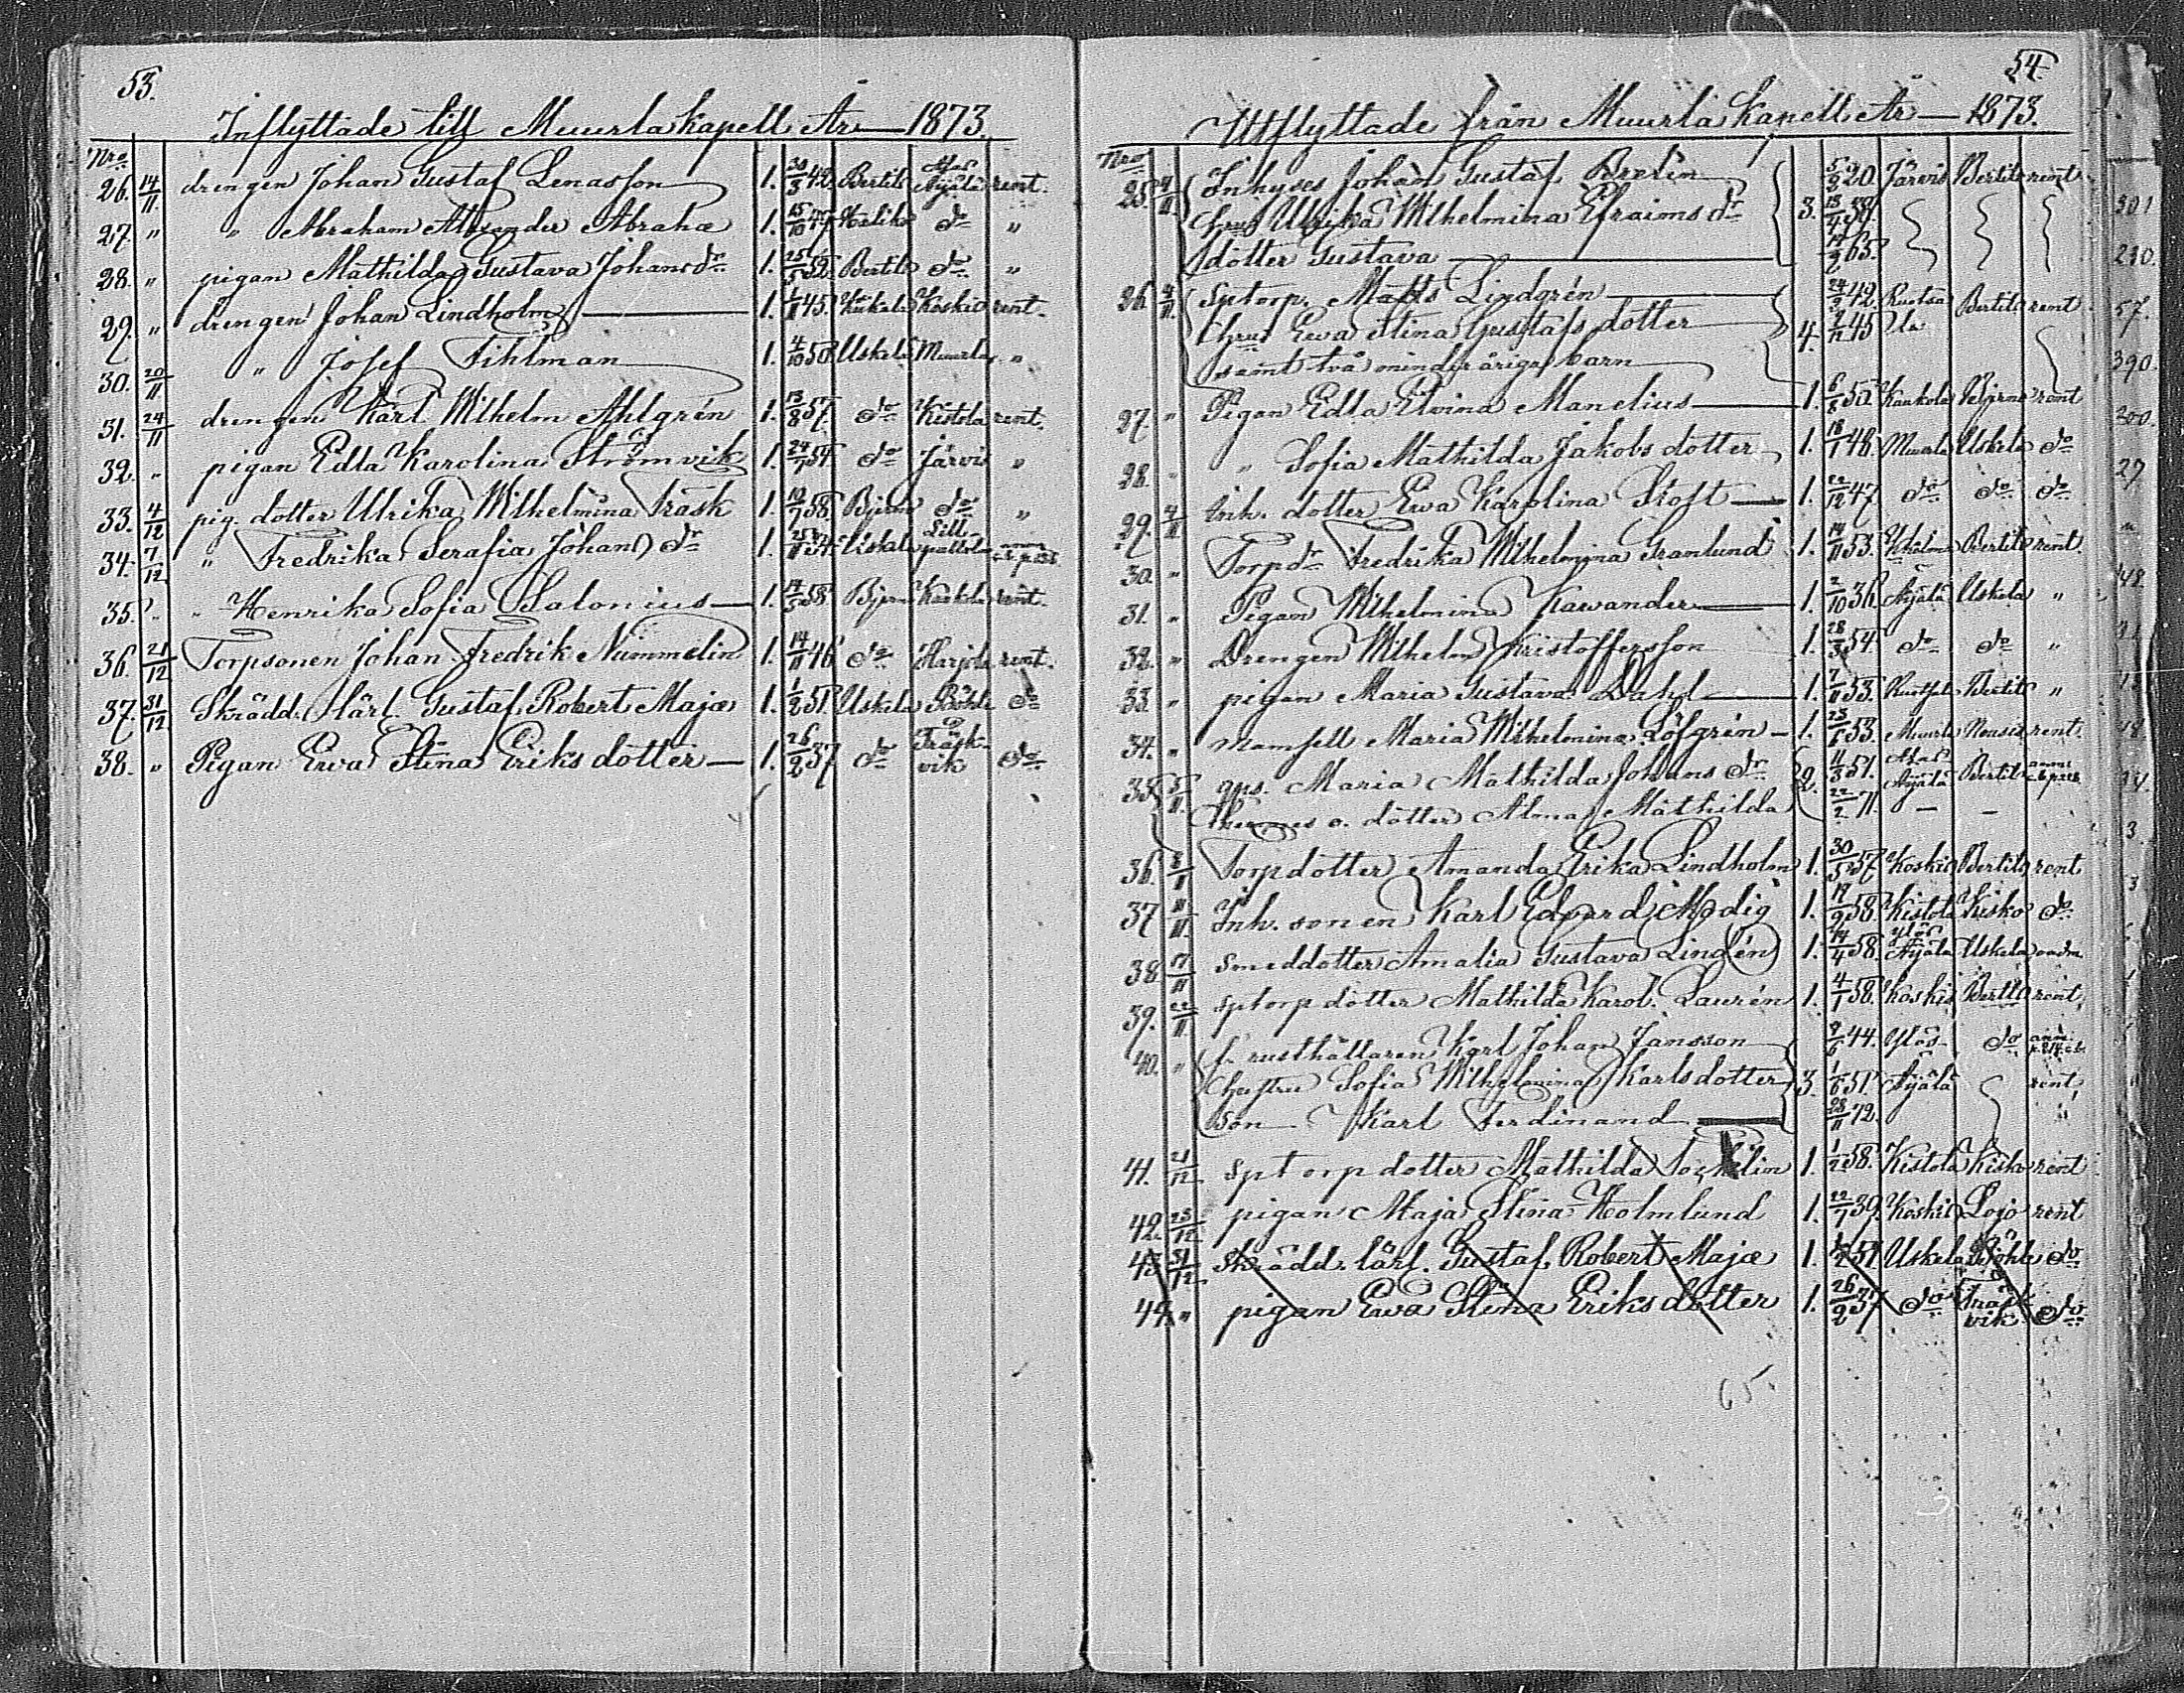 53.
Inflyttade till Muurla kapell År — 1873.
Nro
26. 14/11 drengen Johan Gustaf Lenasson 1. 30/3 42 Bertils Ajälä rent.
27. " " Abraham Alexander Abrahæ 1. 15/10 Haliko do "
28. " pigan Mathilda Gustava Johans dr 1. 25/5 52 Bertils do "
29. " drengen Johan Lindholm 1. 45. Koskis rent.
30. 20/11 " Josef Fihlman 1. 4/10 50. Uskela Muurla "
31. 24/11 drengen Karl Wilhelm Ahlgrén 1. 13/8 57. do Kistola rent.
32. " pigan Edla Karolina Strömvik 1. 24/7 54. do Järvis "
33. 4/12 pig. dotter Ulrika Wilhelmina Träsk 1. 10/7 58. Bjerno do "
34. 7/12 " Fredrika Serafia Johans dr 1. 25/11 Uskela Lill
35. " " Henrika Sofia Salonius — 1. 14/5 58. Bjerno Kaukola rent.
36. 21/12 Torpsonen Johan Fredrik Nummelin 1. 14/11 46 do Harjola rent.
37. 31/12 Skrädd. lärl. Gustaf Robert Majæ 1. 1/2 51. Uskela Pöhle do
38. " Pigan Ewa Stina Eriks dotter — 1. 26/2 37 do Träsk-
vik do
54.
Utflyttade från Muurla kapell År — 1873.
Nro
25. 4/11 Inhyses Johan Gustaf Brelin 5/2 20. Järvis Bertils rent
hust Ulrika Wilhelmina Efraims dr 3.
dotter Gustava 65.
26. 4/11 Sptorp. Matts Lindgrén 24/2 42 Ruotsa Bertils rent
hust Ewa Stina Gustafs dotter 4. 45
samt två minderåriga barn
27. " Pigan Edla Elvina Manelius 1. 6/8 50. Kaukola Bjerno rent
28. " " Sofia Mathilda Jakobs dotter 1. 18/1 48. Muurla Uskela do
29. 4/11 Inh. dotter Ewa Karolina Stoft 1. 22/12 47 do do do
30. " Torp dr Fredrika Wilhelmina Granlund 1. 14/11 53. Ekholm Bertils rent.
31. " Pigan Wilhelmina Kavander 1. 2/10 36. Ajälä Uskela "
32. " Drengen Wilhelm Kristoffersson 1. 28/3 54. do do "
33. " pigan Maria Gustava Dahl 1. 7/11 53. Bertils "
34. " mamsell Maria Wilhelmina Löfgrén — 1. 23/1 53. Muurla Nousis rent.
35. 5/11 qps. Maria Mathilda Johans dr 2. 11/3 51. Ajälä Bertils
Hennes o. dotter Alma Mathilda 22/2 71. — —
36. 8/11 Torpdotter Amanda Erika Lindholm 1. 30/5 57 Koskis Bertils rent
37 Inh. sonen Karl Edvard Modig 1. 19/9 58. Kistola Kisko do
38 17/11 Smeddotter Amalia Gustava Lindén 1. 14/4 58. Ylös Ajälä Uskela
39. 22/11 sptorp dotter Mathilda Karol. Laurén 1. 4/1 58. Koskis Bertils rent
40. " f. rusthållaren Karl Johan Jansson 9/6 44. Ylös do
hustru Sofia Wilhelmina Karlsdotter 3. 1/6 51. Ajälä rent
son Karl Ferdinand 28/11 72. "
41. 21/12 sptorp dotter Mathilda 1. 1/2 58. Kistola Kisko rent
42. 23/12 pigan Maja Stina Holmlund 1. 22/1 39. Koskis Lojo rent
43 31/12 Skrädd. lärl. Gustaf Robert Majæ 1. 1/2 51. Uskela Pöhle do
44. " pigan Ewa Stina Eriks dotter 1. 26/2 37 do Träsk
vik do
65.
301
210.
57.
390.
300.
27
48